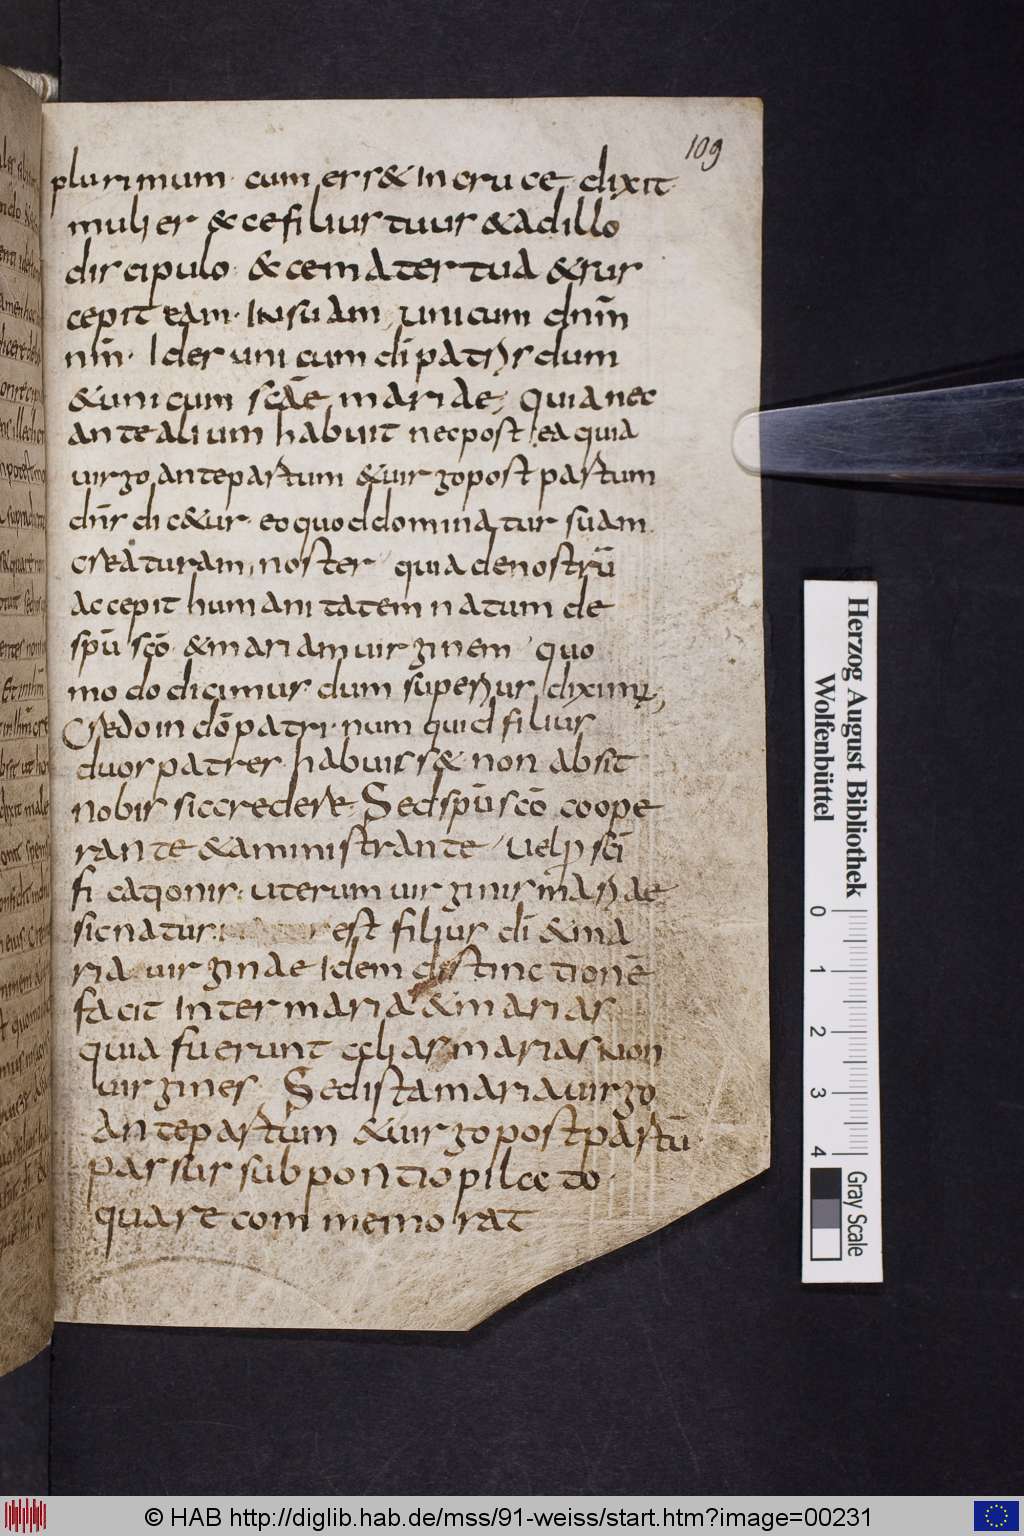 109
plurimum cum ess& in cruce dixit
mulier &ce filius tuus & ad illo
discipulo &ce mater tua & sus
cepit eam in suam, unicum dn̄m
nm̄. Ides unicum dī patris dum
& unicum scāe mariae, quia nec
ante alium habuit nec post ea quia
uirgo ante partum & uirgo post partum
dn̄s dic&ur eo quod dominatur suam
creaturam, noster quia de nostrū
accepit humanitatem natum de
spū scō & mariam uirginem quo
modo dicimus dum superius diximus,
Credo in dō patri numquid filius
duos patres habuiss& non absit
nobis sic credere. Sed spū scō coope
rante & aministrante uel p scī
ficationis uterum uirginis mariae
sic natus est filius dī & ma
ria uirginae Idem distinctionē
facit inter maria & marias
quia fuerunt et alias marias non
uirgines Sed ista maria uirgo
ante partum & uirgo post partū
passus sub pontio pilato
quare commemorat
Herzog August Bibliothek
Wolfenbüttel
0 1 2 3 4
Gray Scale
© HAB http://diglib.hab.de/mss/91-weiss/start.htm?image=00231